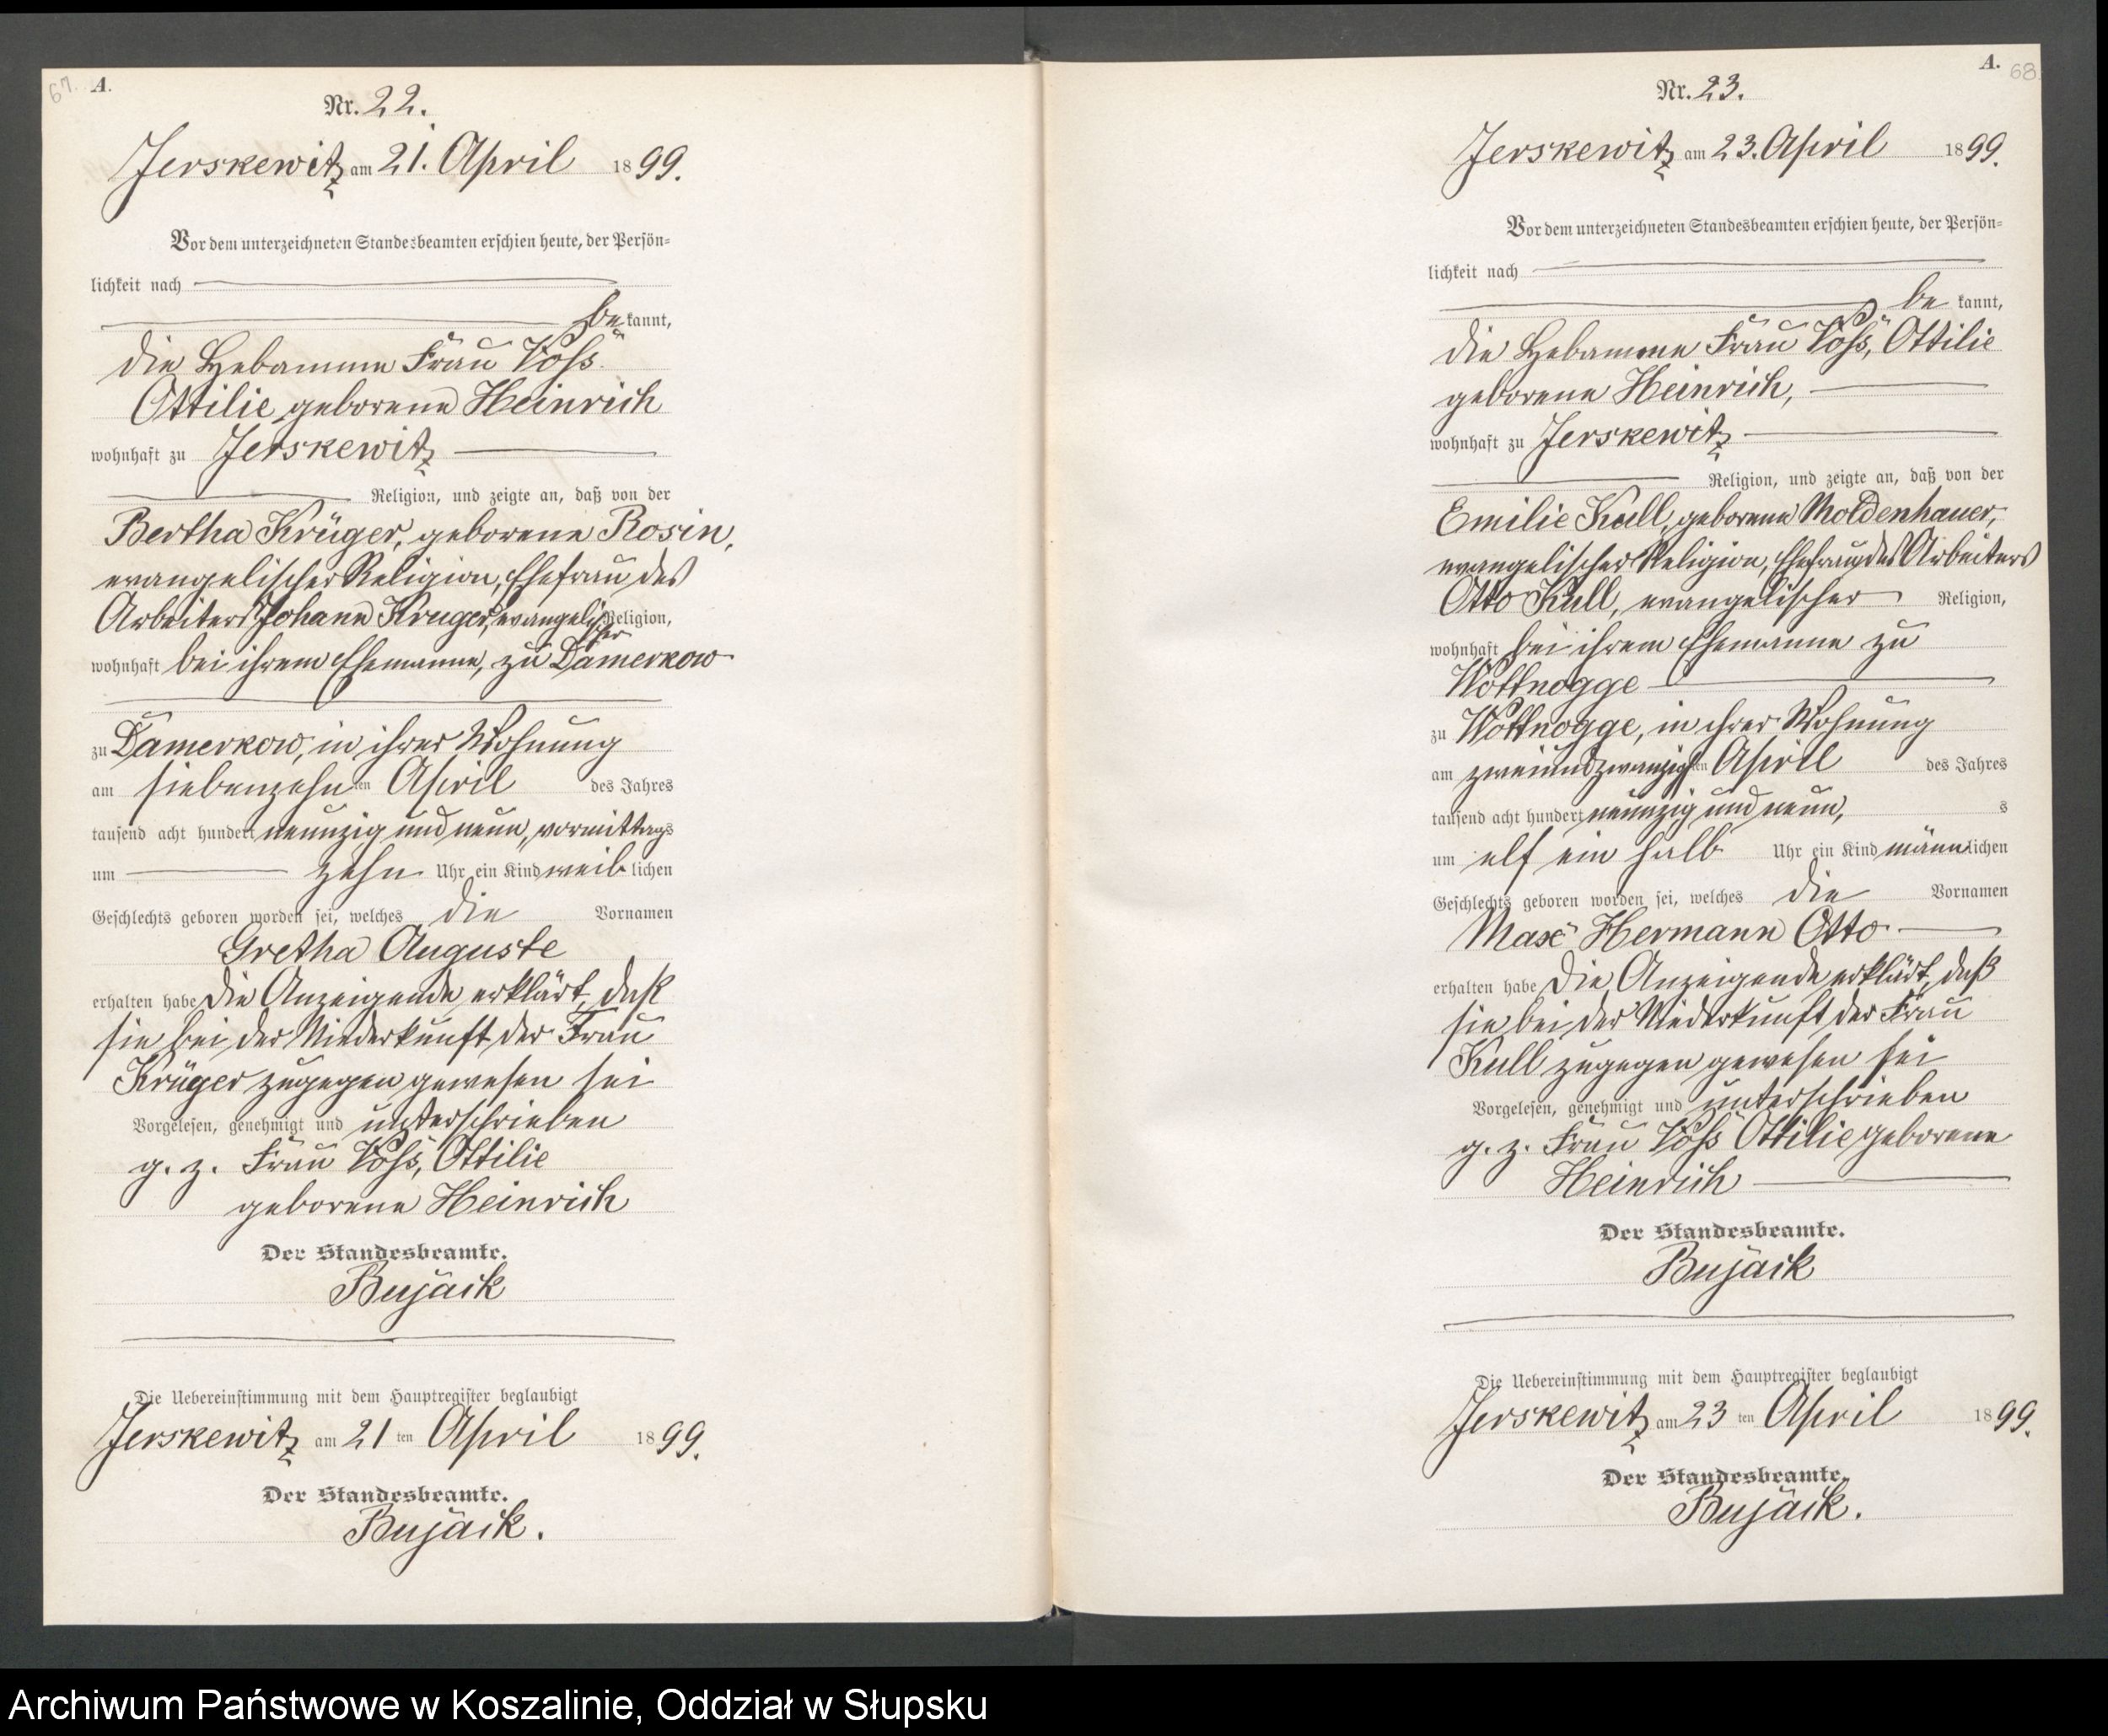 67.
A.
Nr. 22.
Jerskewitz am 21. April 1899.
Vor dem unterzeichneten Standesbeamten erschien heute, der Persön-
lichkeit nach
bekannt,
die Hebamme Frau Voß
Ottilie geborene Heinrich
wohnhaft zu Jerskewitz
Religion, und zeigte an, daß von der
Bertha Krüger, geborene Rosin,
evangelischer Religion, Ehefrau des
Arbeiters Johann Krüger, evangelischer Religion,
wohnhaft bei ihrem Ehemanne, zu Damerkow
zu Damerkow, in ihrer Wohnung
am siebenzehnten April des Jahres
tausend acht hundert neunzig und neun, vormittags
um zehn Uhr ein Kind weiblichen
Geschlechts geboren worden sei, welches die Vornamen
Gretha Auguste
erhalten habe Die Anzeigende erklärt, daß
sie bei der Niederkunft der Frau
Krüger zugegen gewesen sei
Vorgelesen, genehmigt und unterschrieben
g. z. Frau Voß, Ottilie
geborene Heinrich
Der Standesbeamte.
Bujack
Die Uebereinstimmung mit dem Hauptregister beglaubigt
Jerskewitz am 21ten April 1899.
Der Standesbeamte.
Bujack.
A.
68.
Nr. 23.
Jerskewitz am 23. April 1899.
Vor dem unterzeichneten Standesbeamten erschien heute, der Persön-
lichkeit nach
bekannt,
die Hebamme Frau Voß, Ottilie
geborene Heinrich,
wohnhaft zu Jerskewitz
Religion, und zeigte an, daß von der
Emilie Kull, geborene Moldenhauer,
evangelischer Religion, Ehefrau des Arbeiters
Otto Kull, evangelischer Religion,
wohnhaft bei ihrem Ehemanne zu
Wottnogge
zu Wottnogge, in ihrer Wohnung
am zweiundzwanzigsten April des Jahres
tausend acht hundert neunzig und neun, s
um elf ein halb Uhr ein Kind männlichen
Geschlechts geboren worden sei, welches die Vornamen
Max Hermann Otto
erhalten habe Die Anzeigende erklärt, daß
sie bei der Niederkunft der Frau
Kull zugegen gewesen sei
Vorgelesen, genehmigt und unterschrieben
g. z. Frau Voß Ottilie geborene
Heinrich
Der Standesbeamte.
Bujack
Die Uebereinstimmung mit dem Hauptregister beglaubigt
Jerskewitz am 23ten April 1899.
Der Standesbeamte.
Bujack.
Archiwum Państwowe w Koszalinie, Oddział w Słupsku